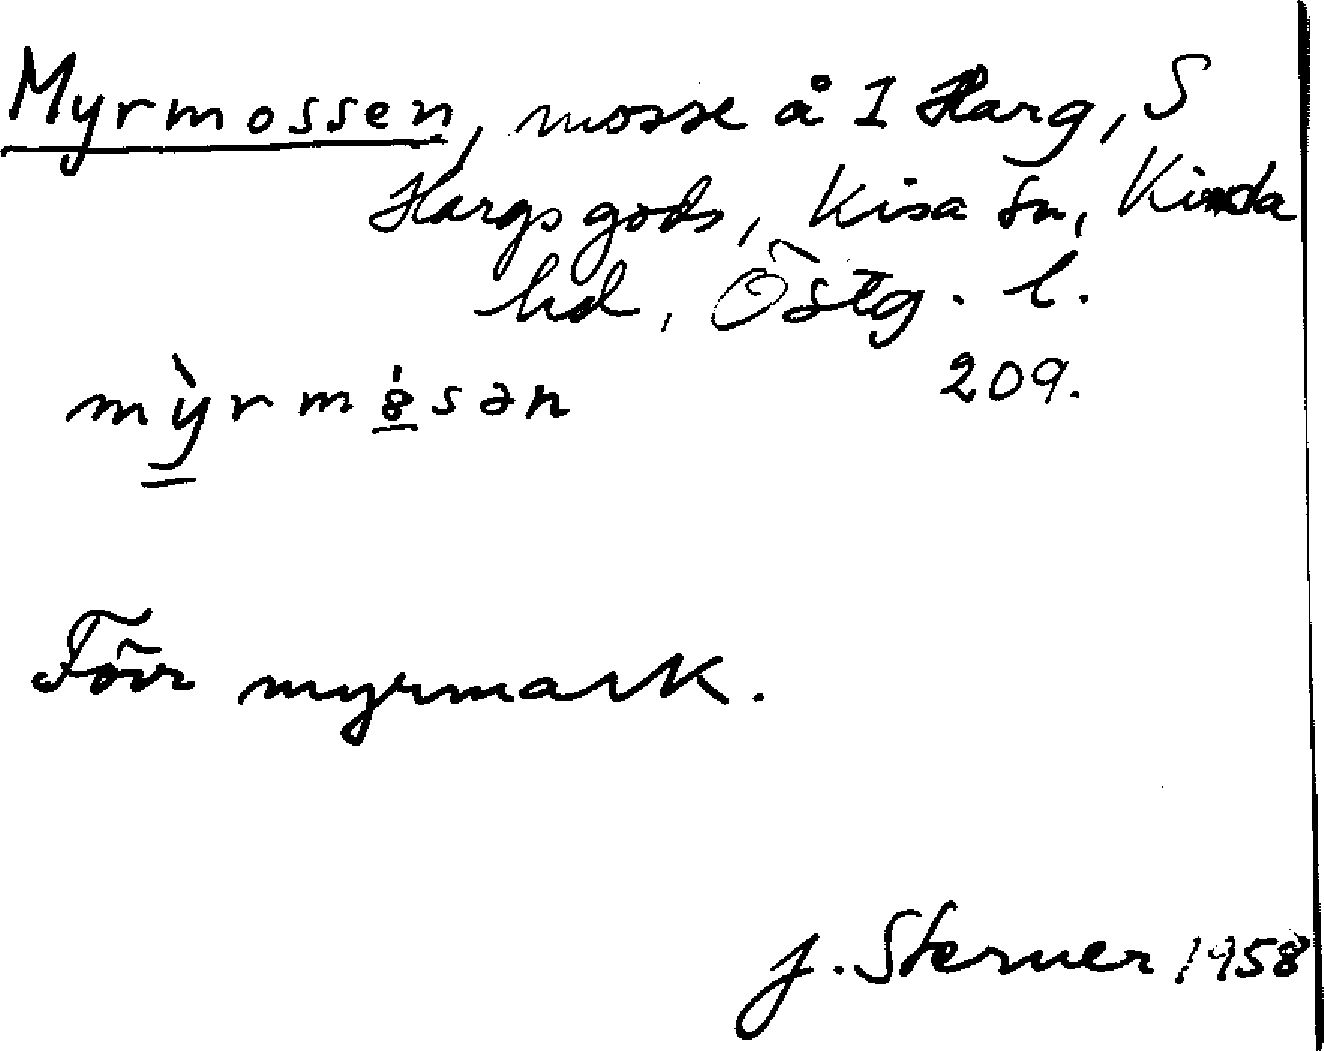 Myrmossen, mosse å 1 Harg, S
Hargs gods, Kisa sn, Kinda
hd, Östg. l.
209.
mỳrmó̱sən
Förr myrmark.
J. Sterner 1958